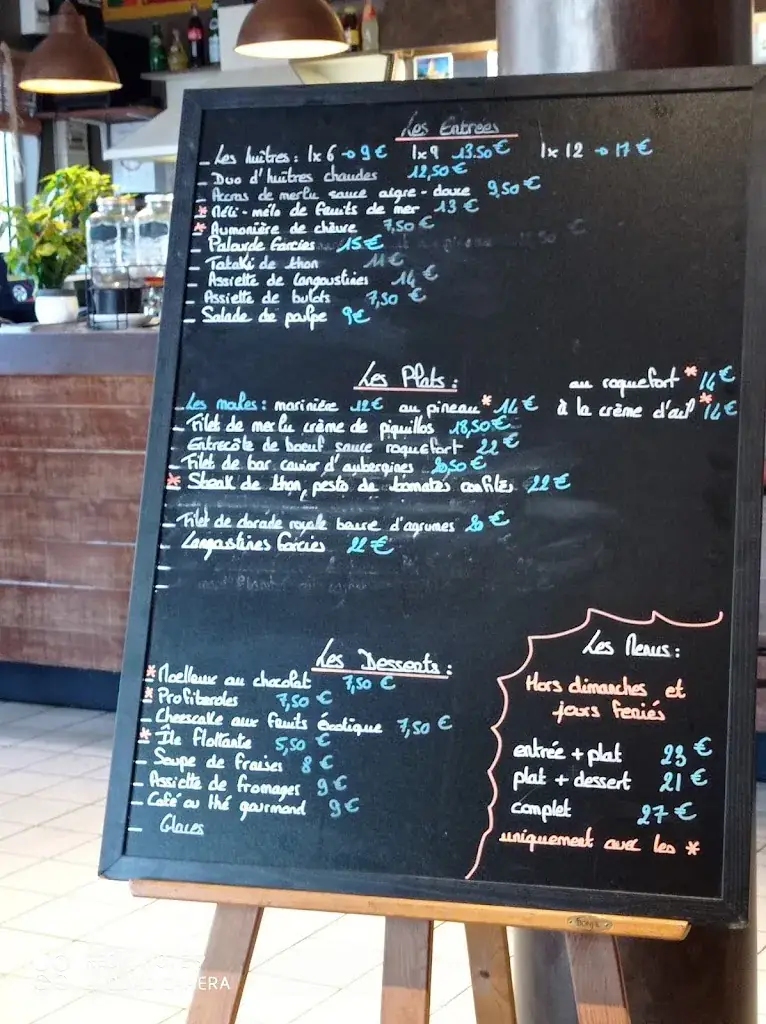 Les Entrées
- Les huîtres : 1x6 → 9€ 1x9 13.50€ 1x12 → 17€
- Duo d'huîtres chaudes 12,50€
- Accras de merlu sauce aigre-douce 9,50€
* Méli-mélo de fruits de mer 13€
* Aumonière de chèvre 7,50€
- Palourde farcies 15€
- Tataki de thon 11€
- Assiette de langoustines 14€
- Assiette de bulots 7,50€
- Salade de poulpe 9€
Les Plats :
- Les moules : marinière 12€ au pineau * 14€ au roquefort * 14€
à la crème d'ail * 14€
- Filet de merlu crème de piquillos 18,50€
- Entrecôte de boeuf sauce roquefort 22€
- Filet de bar caviar d'aubergines 20,50€
* Steak de thon, pesto de tomates confites 22€
- Filet de dorade royale beurre d'agrumes 20€
- Langoustines farcies 22€
-
-
Les Desserts :
* Moelleux au chocolat 7,50€
* Profiteroles 7,50€
- Cheescake aux fruits éxotique 7,50€
* Île flottante 5,50€
- Soupe de fraises 8€
- Assiette de fromages 9€
- Café ou thé gourmand 9€
- Glaces
Les Menus :
Hors dimanches et
jours feriés
entrée + plat 23€
plat + dessert 21€
complet 27€
uniquement avec les *